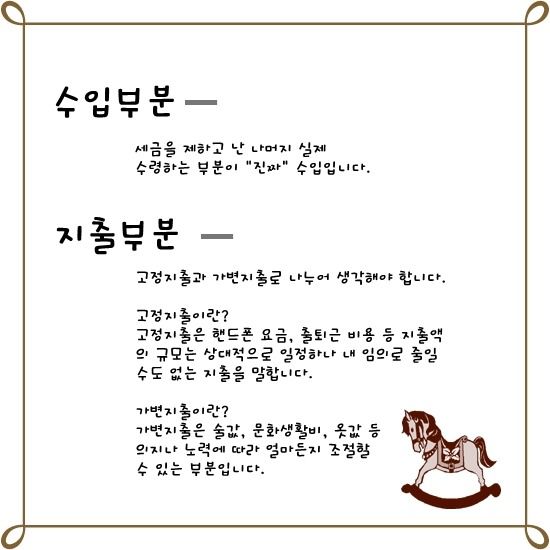 수입부분 —
세금을 제하고 난 나머지 실제
수령하는 부분이 "진짜" 수입입니다.
지출부분 —
고정지출과 가변지출로 나누어 생각해야 합니다.
고정지출이란?
고정지출은 핸드폰 요금, 출퇴근 비용 등 지출액
의 규모는 상대적으로 일정하나 내 임의로 줄일
수도 없는 지출을 말합니다.
가변지출이란?
가변지출은 술값, 문화생활비, 옷값 등
의지나 노력에 따라 얼마든지 조절할
수 있는 부분입니다.